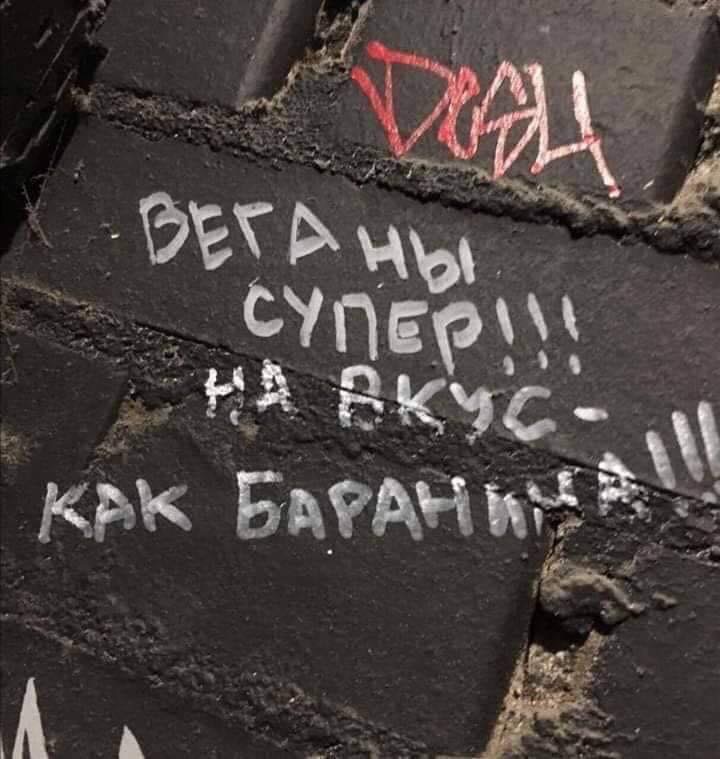 DOSH
ВЕГАНЫ
СУПЕР!!!
НА ВКУС-
КАК БАРАНИНА!!!